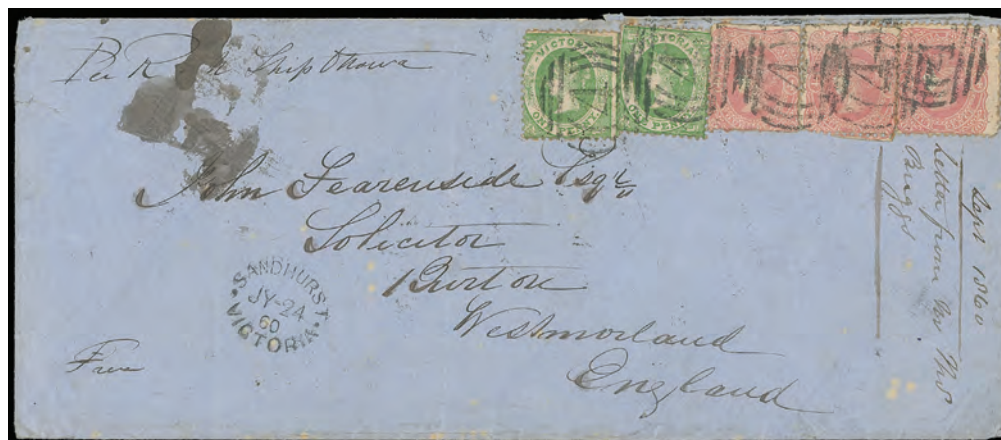 Per R M Ship Ottawa
VICTORIA
ONE PENNY
VICTORIA
ONE PENNY
John Fearenside Esqre
Solicitor
Burton
Westmorland
England
SANDHURST
JY-24
60
VICTORIA
Sept 1860
Letter from Mr Thos
Briggs